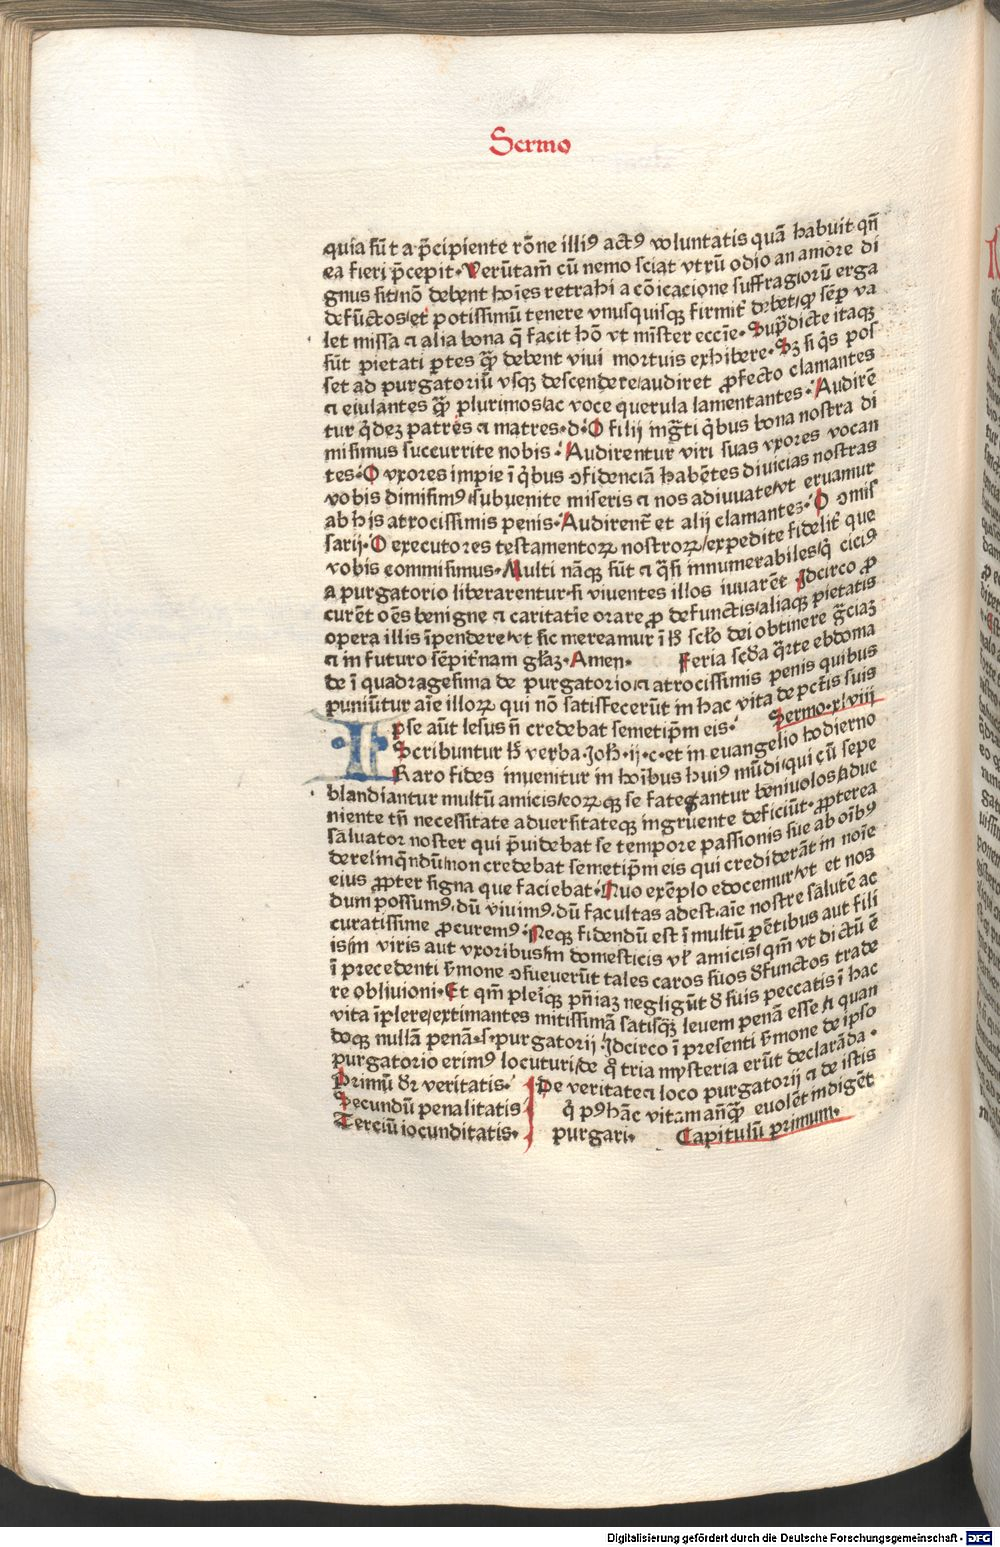 Sermo
quia sūt a p̄cipiente rōne illiꝰ actꝰ voluntatis quā habuit qn̄
ea fieri p̄cepit. Verūtam̄ cū nemo sciat vtrū odio an amore di
gnus sit/nō debent hoīes retrahi a cōicacione suffragiorū erga
defūctos/et potissimū tenere vnusquisqꝫ firmit̄ debet/ꝙ sēp va
let missa ⁊ alia bona q̄ facit hō vt mīster eccīe. Sup̄dicte itaqꝫ
sūt pietati ꝑtes qꝝ̄ debent viui mortuis exhibere. Sꝫ si q̄s pos
set ad purgatoriū vsqꝫ descendere/audiret ꝓfecto clamantes
⁊ eiulantes qꝝ̄ plurimos/ac voce querula lamentantes. Audirē
tur q̄deꝫ patres ⁊ matres.d. O filij ingr̄ti q̄bus bona nostra di
misimus succurrite nobis. Audirentur viri suas vxores vocan
tes. O vxores impie ī q̄bus ꝯfidenciā habētes diuicias nostras
vobis dimisimꝰ/subuenite miseris ⁊ nos adiuuate/vt eruamur
ab his atrocissimis penis. Audirent̄ et alij clamantes. O ꝯmis
sarij. O executores testamentoꝝ nostroꝝ/expedite fidelit̄ que
vobis commisimus. Multi nāqꝫ sūt ⁊ q̄si innumerabiles/q̄ ciciꝰ
a purgatorio liberarentur/si viuentes illos iuuarēt Idcirco ꝓ
curēt oēs benigne ⁊ caritatiue orare ꝓ defunctis/aliaqꝫ pietatis
opera illis īpendere/vt sic mereamur ī h̄ scl̄o dei obtinere gr̄ciaꝫ
⁊ in futuro sēpit̄nam gl̄aꝫ. Amen. Feria sc̄da q̄rte ebdoma
de ī quadragesima de purgatorio/⁊ atrocissimis penis quibus
puniūtur aīe illoꝝ qui nō satisfecerūt in hac vita de pctīs suis
Sermo.xlviii
Ipse aūt Iesus n̄ credebat semetip̄m eis.
Scribuntur h̄ verba.Ioh̄.ij.c.et in euangelio hodierno
Raro fides inuenitur in hoībus huiꝰ mūdi/qui cū sepe
blandiantur multū amicis/eoꝝqꝫ se fategantur beniuolos/adue
niente tn̄ necessitate aduersitateqꝫ ingruente deficiūt. ꝓpterea
saluator noster qui p̄uidebat se tempore passionis sue ab oībꝰ
derelinq̄ndū/non credebat semetip̄m eis qui crediderāt in noīe
eius ꝓpter signa que faciebat. Quo exēplo edocemur/vt et nos
dum possumꝰ.dū viuimꝰ.dū facultas adest.aīe nostre salutē ac
curatissime ꝓcuremꝰ. Neqꝫ fidendū est ī multū pētibus aut fili
is/in viris aut vxoribus/in domesticis vl̄ amicis/qm̄ vt dictū ē
ī precedenti s̄mone ꝯsueuerūt tales caros suos defunctos trade
re obliuioni. Et qm̄ pleīqꝫ pn̄iaꝫ negligūt de suis peccatis ī hac
vita īplere/extimantes mitissimā satisqꝫ leuem penā esse si quan
doqꝫ nullā penā.s.purgatorij Idcirco ī presenti s̄mone de ipso
purgatorio erimꝰ locuturi/de q̊ tria mysteria erūt declarāda.
Primū dr̄ veritatis.
Secundū penalitatis
Terciū iocunditatis.
De veritate ⁊ loco purgatorij ⁊ de istis
q̄ pꝰ hāc vitam añqꝝ̄ euolēt indigēt
purgari. Capitulū primum.
Digitalisierung gefördert durch die Deutsche Forschungsgemeinschaft - DFG